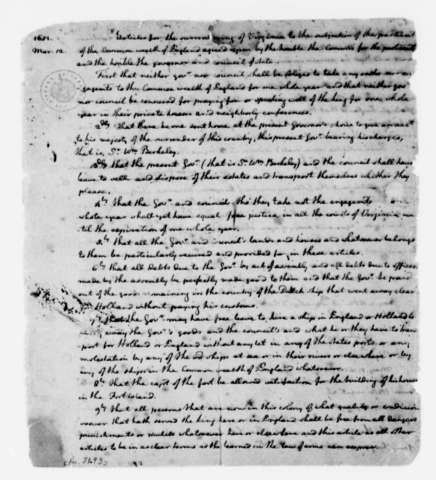 1651. Articles for the surrendring of Virginia to the subjection of the parliament
Mar. 12. of the Common wealth of England agreed upon by the honble the Commrs for the parliament
and the honble the governor and council of state.
First that neither govr nor council shall be obliged to take any oath or en-
gagement to the Common wealth of England for one whole year and that neither govr
nor council be censured for praying for or speaking well of the king for one whole
year in their private houses and neighborly conferences.
2dly that there be one sent home at the present Governor's choice to give accompt
to his majesty of the surrender of this country, the present Govr bearing his charges,
that is, Sr Wm Berkeley.
3dly that the present Govr (that is Sr Wm Berkeley) and the council shall have
leave to sell and dispose of their estates and transport themselves whether they
please.
4ly that the Govr and council tho' they take not the engagement
whole year shall yet have equal & free justice in all the courts of Virginia un-
til the expiration of one whole year.
5ly that all the Govr and council's lands and houses and whatsoever belongs
to them be particularly secured and provided for in these articles.
6ly that all debts due to the Govr by act of assembly and all debts due to officers
made by the assembly be perfectly made good to them and that the Govr be paid
out of the goods remaining in the country of the Dutch ship that went away clear
Holland without paying his customs.
7ly that the Govr may have free leave to hire a ship in England or Holland to
away the Govr's goods and the council's and what he or they have to trans-
port for Holland or England without any let in any of the states ports or any
molestation by any of the ships at sea or in their rivers or elsewhere or by
any of the ships in the Common wealth of England whatsoever.
8ly that the capt of the fort be allowed satisfaction for the building of his house
in the Fort island.
9ly that all persons that are now in this colony of what quality or condition
soever that hath served the king here or in England shall be free from all dangers
punishments or mulcts whatsoever here or elsewhere and this article as all other
articles to be in as clear terms as the learned in the law of arms can express.